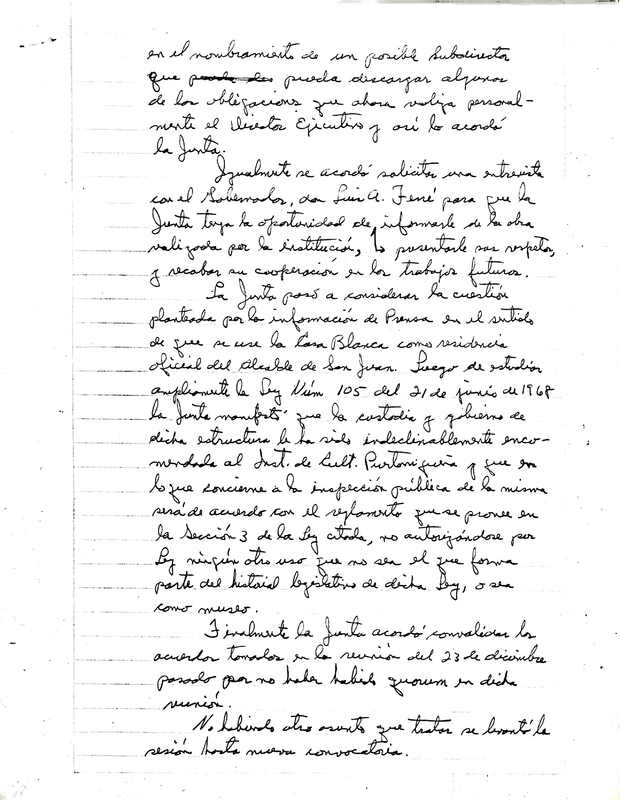 en el nombramiento de un posible Subdirector
que pueda des pueda descargar algunas
de las obligaciones que ahora realiza personal-
mente el Director Ejecutivo y así lo acordó
la Junta.
Igualmente se acordó solicitar una entrevista
con el Gobernador, don Luis A. Ferré para que la
Junta tenga la oportunidad de informarle de la obra
realizada por la institución, presentarle sus respetos,
y recabar su cooperación en los trabajos futuros.
La Junta pasó a considerar la cuestión
planteada por la información de Prensa en el sentido
de que se use la Casa Blanca como residencia
oficial del Alcalde de San Juan. Luego de estudiar
ampliamente la Ley Núm 105 del 21 de junio de 1968
la Junta manifestó que la custodia y gobierno de
dicha estructura le ha sido indeclinablemente enco-
mendada al Inst. de Cult. Puertorriqueña y que en
lo que concierne a la inspección pública de la misma
será de acuerdo con el reglamento que se provee en
la Sección 3 de la Ley citada, no autorizándose por
Ley ningún otro uso que no sea el que forma
parte del historial legislativo de dicha Ley, o sea
como museo.
Finalmente la Junta acordó convalidar los
acuerdos tomados en la reunión del 23 de diciembre
pasado por no haber habido quorum en dicha
reunión.
No habiendo otro asunto que tratar se levantó la
sesión hasta nueva convocatoria.